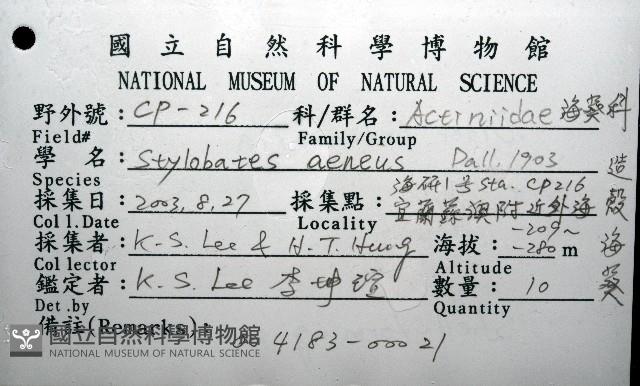 國立自然科學博物館
NATIONAL MUSEUM OF NATURAL SCIENCE
野外號: CP-216 科/群名: Actiniidae 海葵科
Field# Family/Group
學 名: Stylobates aeneus Dall, 1903
Species
造殼海葵
海研1號 Sta. CP216
採集日: 2003, 8, 27 採集點: 宜蘭蘇澳附近外海
Coll.Date Locality
-209~
採集者: K.S. Lee & H.T. Hung 海拔: -280 m
Collector Altitude
鑑定者: K.S. Lee 李坤瑄 數量: 10
Det.by Quantity
備註(Remarks):
國立自然科學博物館
NATIONAL MUSEUM OF NATURAL SCIENCE
4183-00021